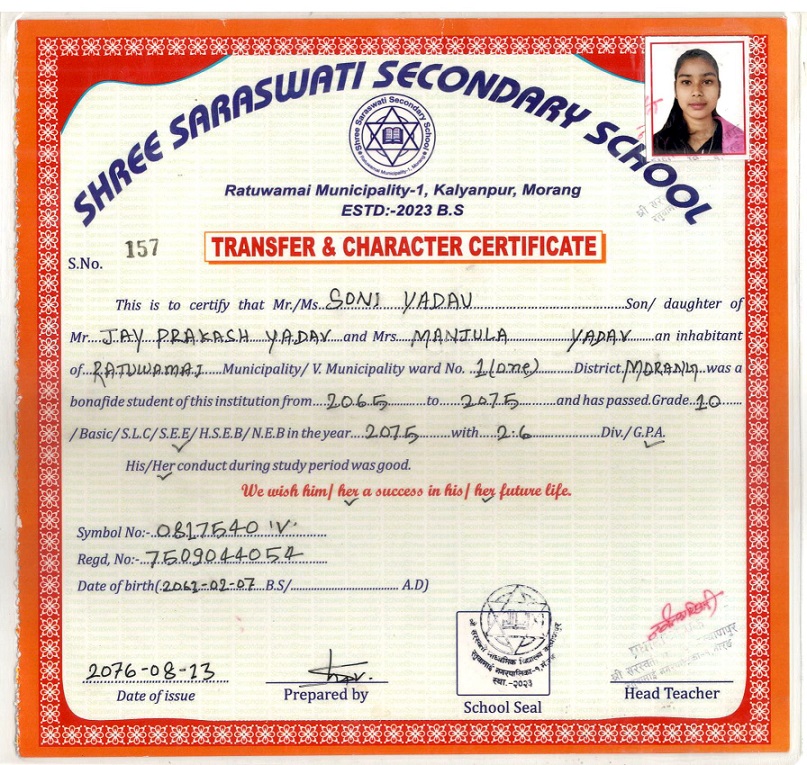 SHREE SARASWATI SECONDARY SCHOOL
Shree Saraswati Secondary School
Ratuwamai Municipality-1, Morang
Ratuwamai Municipality-1, Kalyanpur, Morang
ESTD:-2023 B.S
S.No. 157
TRANSFER & CHARACTER CERTIFICATE
This is to certify that Mr./Ms. SONI YADAV Son/ daughter of
Mr. JAY PRAKASH YADAV and Mrs. MANJULA YADAV an inhabitant
of RATUWAMAI Municipality/ V. Municipality ward No. 1(one) District. MORANG was a
bonafide student of this institution from 2065 to 2075 and has passed.Grade 10
/Basic/S.L.C/S.E.E/H.S.E.B/N.E.B in the year 2075 with 2.6 Div./ G.P.A.
His/Her conduct during study period was good.
We wish him/ her a success in his/ her future life.
Symbol No:- 0817540 'V'
Regd, No:- 7509044054
Date of birth(2061-02-07 B.S/ A.D)
श्री सरस्वती माध्यमिक विद्यालय कल्याणपुर
रतुवामाई नगरपालिका-१, मोरङ
स्था.-२०२३
2076-08-13
Date of issue
Prepared by
School Seal
Head Teacher